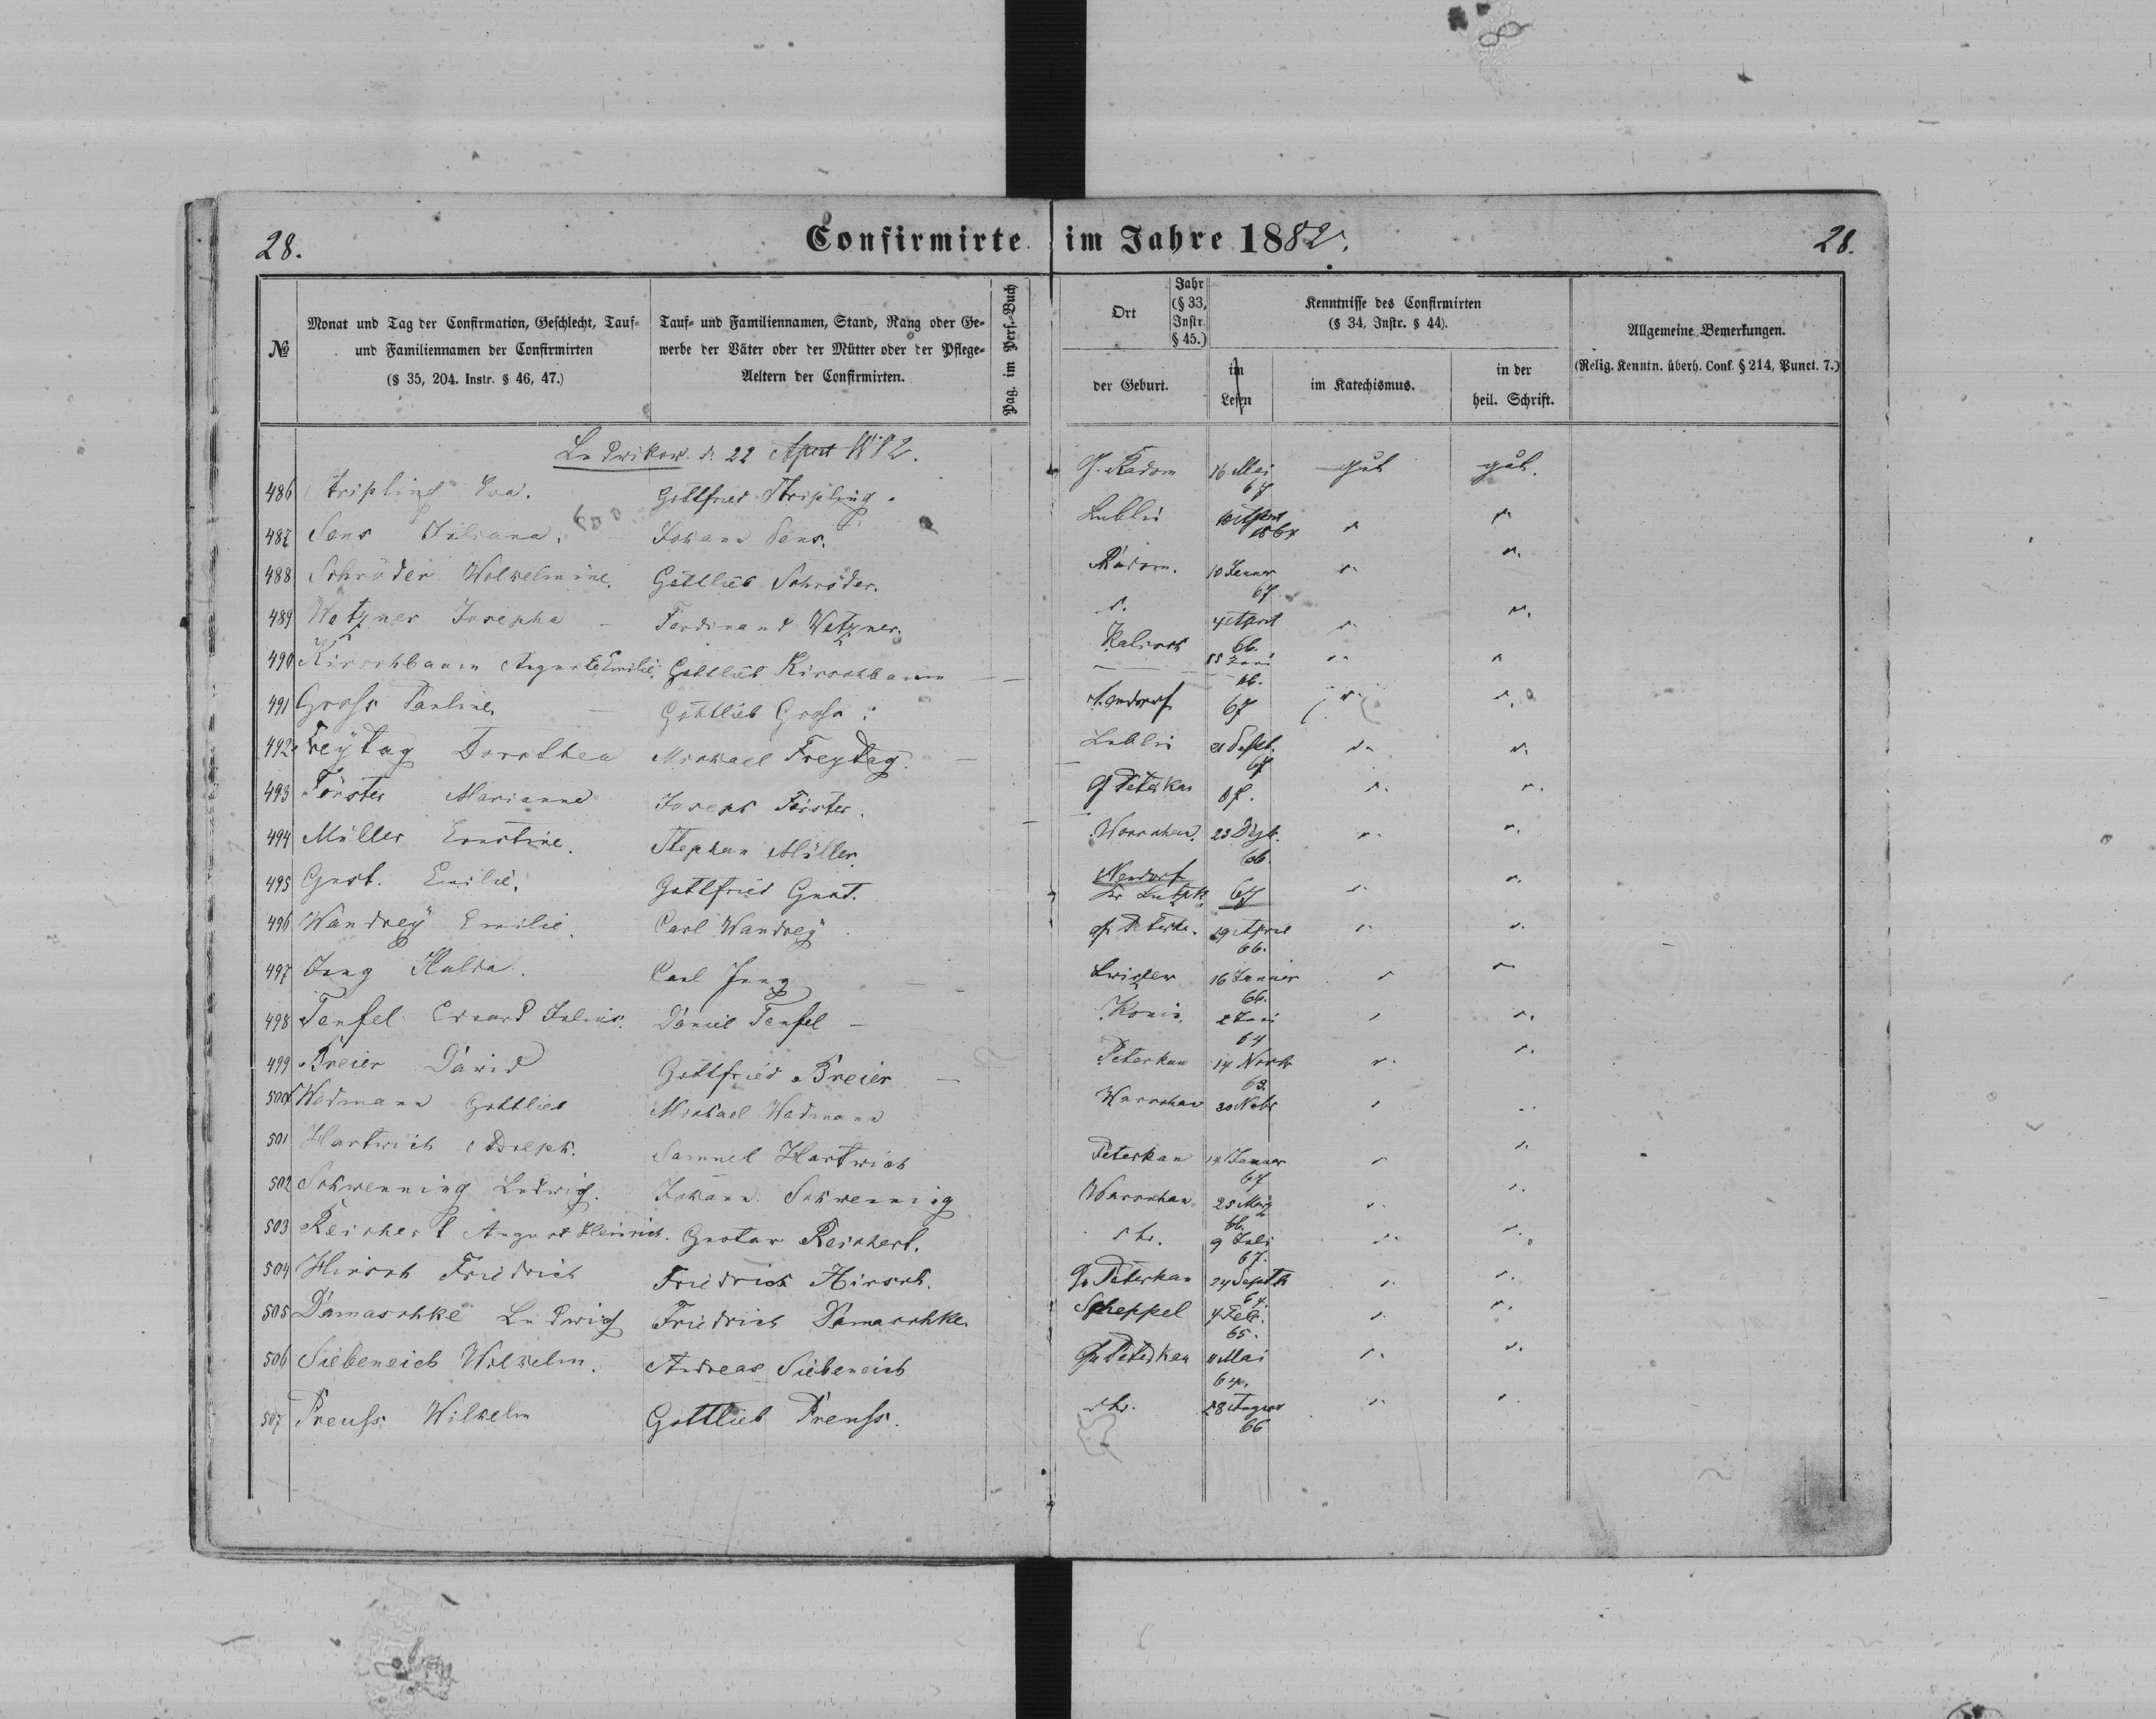 28. Confirmirte im Jahre 1882. 28.
№ Monat und Tag der Confirmation, Geschlecht, Tauf- und Familiennamen der Confirmirten (§ 35, 204. Instr. § 46, 47.)
Tauf- und Familiennamen, Stand, Rang oder Gewerbe der Väter oder der Mütter oder der Pflege-Aeltern der Confirmirten.
Pag. im Pers.-Buch
Ort Jahr (§ 33, Instr. § 45.) der Geburt.
Kenntnisse des Confirmirten (§ 34, Instr. § 44).
im Lesen im Katechismus. in der heil. Schrift.
Allgemeine Bemerkungen. (Relig. Kenntn. überh. Conf. § 214, Punct. 7.)
Ludwikow. d. 22 April 1882.
486 Stripling Eva. Gottfried Stripling. G. Radom 16 Mai 67 gut gut.
487 Sens Juliana. Johann Sens. Lublin
488 Schröder Wilhelmine. Gottlieb Schröder. Radom. 10 Jenner 67
489 Wetzner Josepha Ferdinand Wetzner. 4 April 66.
490 Kirschbaum Auguste Emilie. Gottlieb Kirschbaum Kalisch 66.
491 Gross Pauline Gottlieb Gross 67
492 Freytag Dorothea Michael Freytag. Lublin 21 Sept. 67
493 Förster Marianna Joseph Förster. G Peterkau 67.
494 Müller Ernstine. Stephan Müller. Warschau. 23 Dezb. 66.
495 Gust. Emilie. Gottfried Gust. Neudorf Kr Lutzk 67
496 Wandrey Emilie. Carl Wandrey 19 April 66.
497 Jung Hulda. Carl Jung 16 Januar 66.
498 Teufel Eduard Julius. Daniel Teufel Konin. 2 Juni 64
499 Breier David Gottfried Breier Peterkau 14 Novb 63.
500 Wedmann Gottlieb Michael Wedmann Warschau 30 Nobr
501 Hartwich Adolph. Samuel Hartwich Peterkau 14 Januar 67
502 Schwenning Ludwig. Johann Schwennig Warschau 25 März 66.
503 Reichert August Heinrich. Gustav Reichert. 9 Juli 67.
504 Hirsch Friedrich Friedrich Hirsch. Gv Peterkau 24 Septb 64.
505 Damaschke Ludwig Friedrich Damaschke Scheppel 4 Feb. 65.
506 Siebeneich Wilhelm. Andreas Siebeneich Gv Peterkau 11 Mai 64.
507 Preuss Wilhelm Gottlieb Preuss. 28 August 66